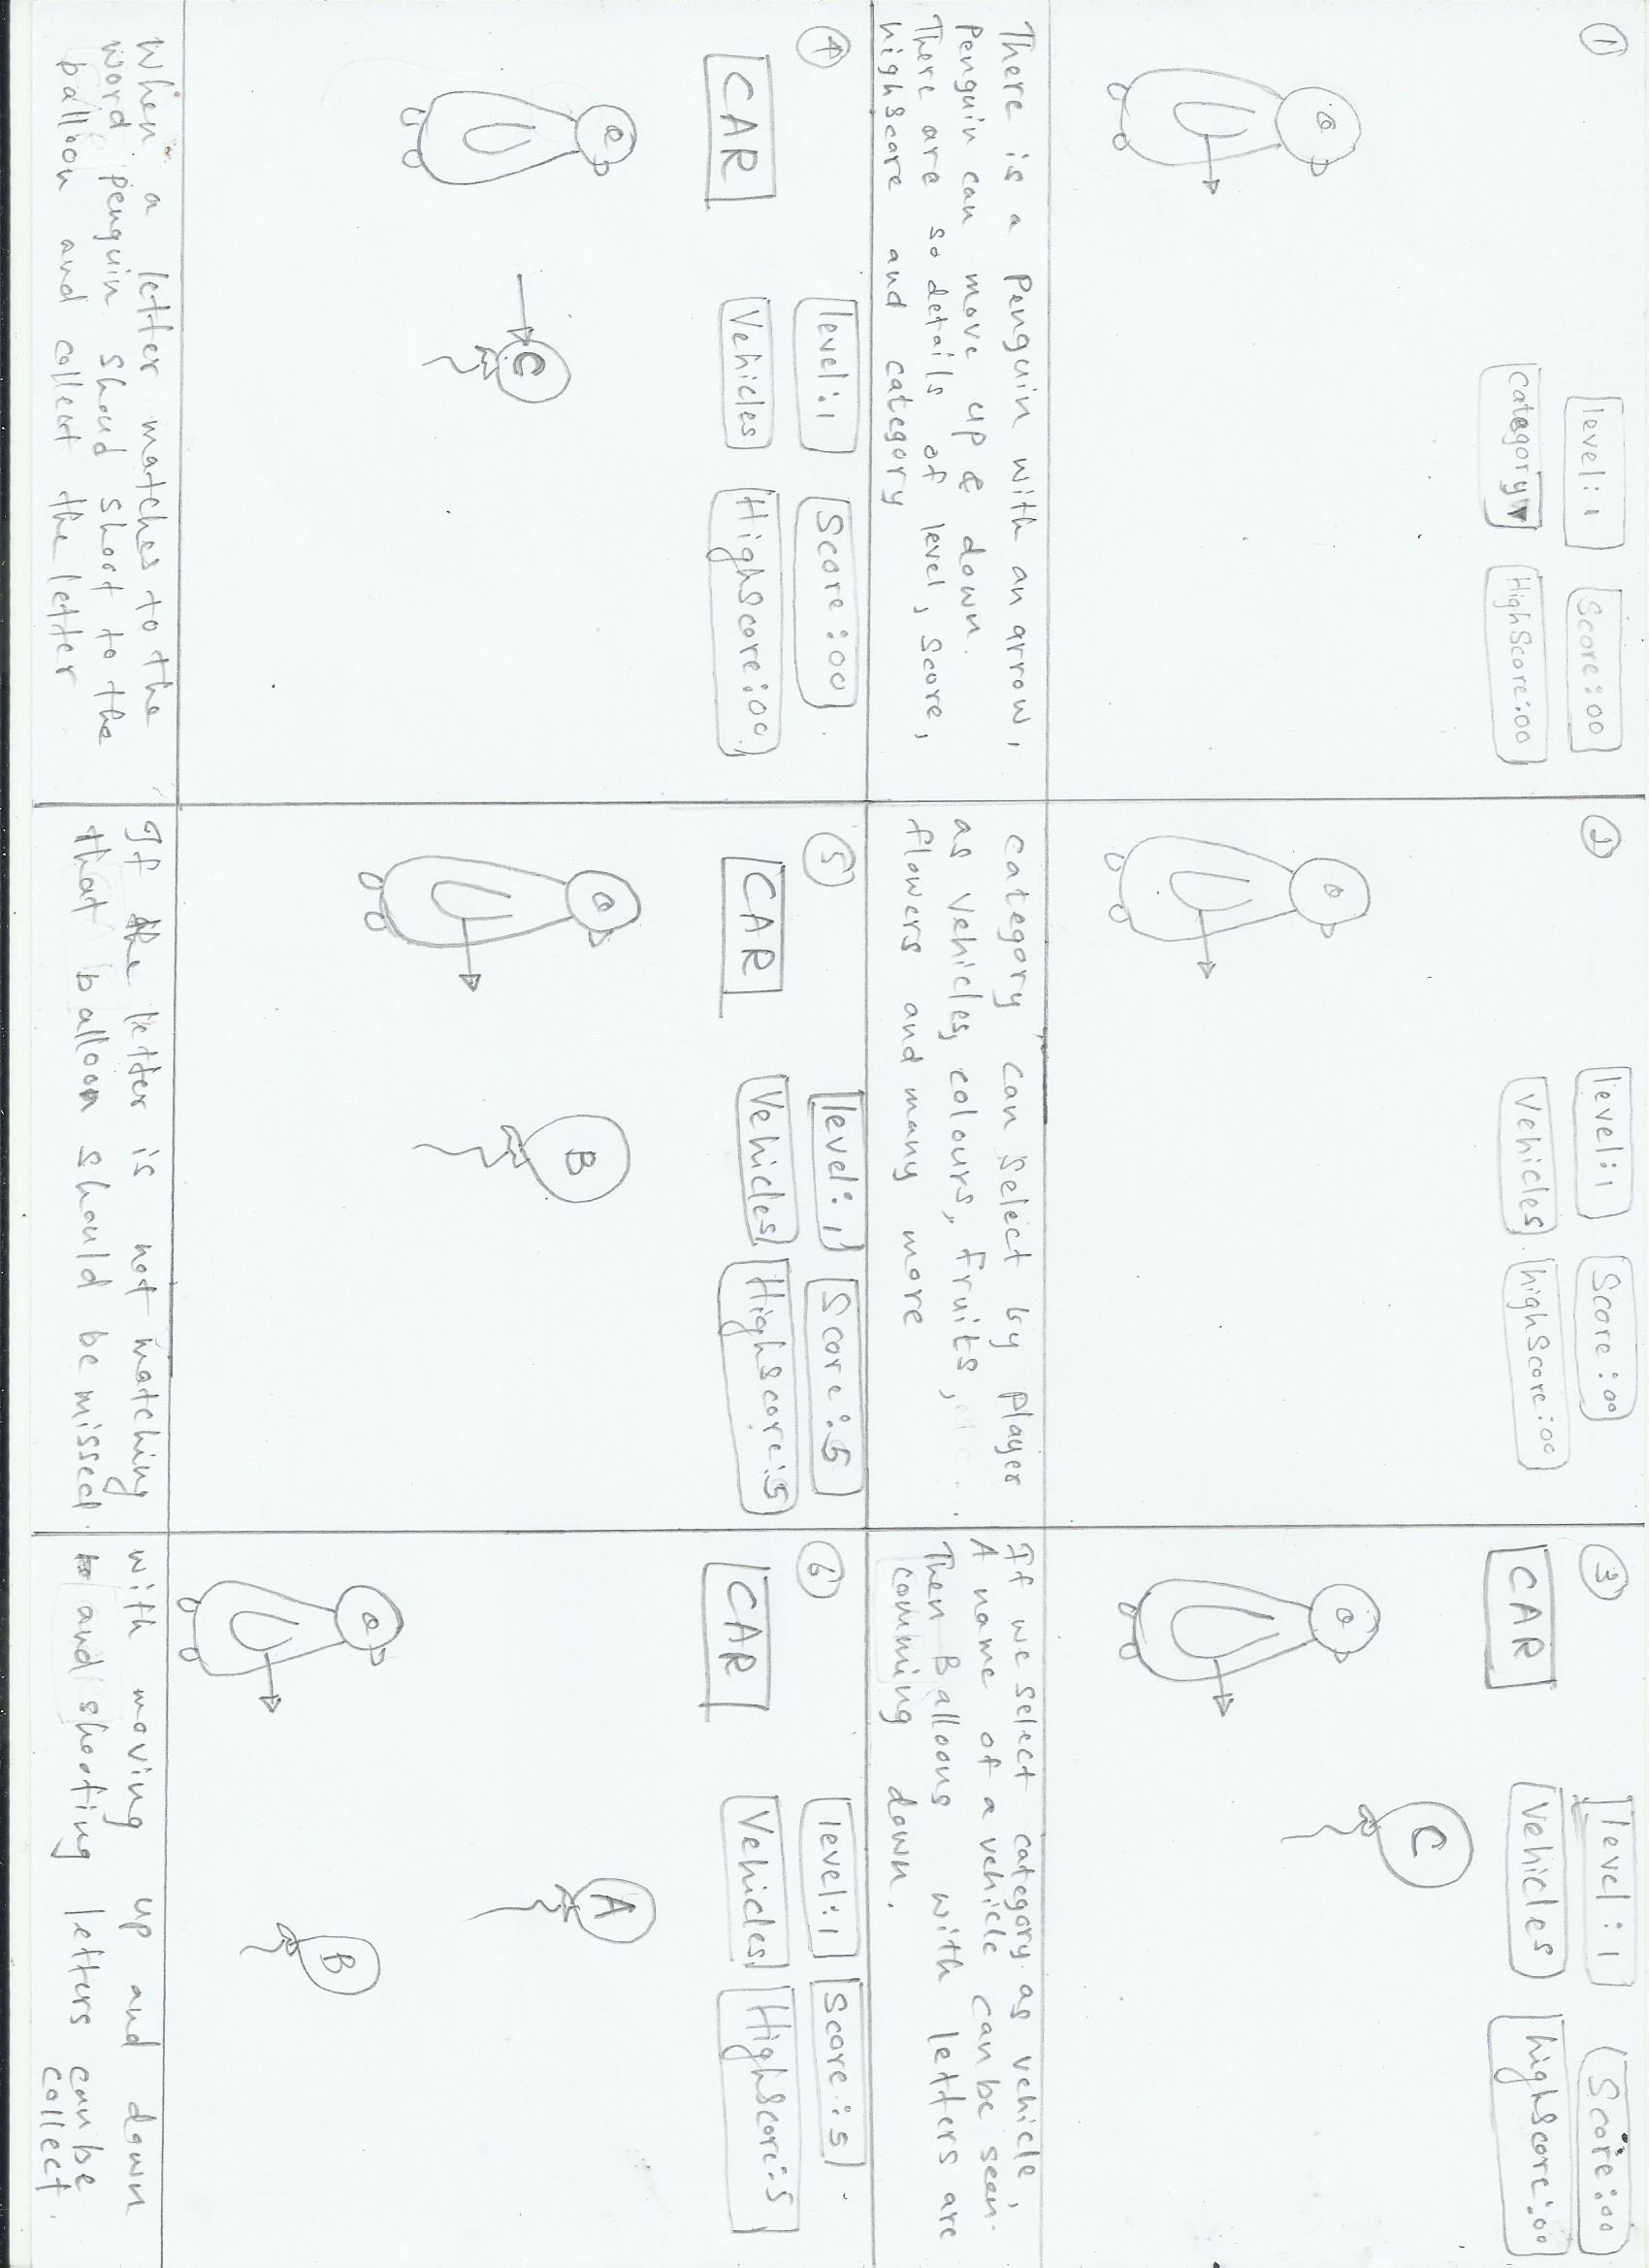 1
level:1
Score:00
category
HighScore:00
There is a penguin with an arrow,
Penguin can move up & down.
There are so details of level, score,
highscore and category
2
level:1
Score:00
Vehicles
highscore:00
category can select by player
as vehicles, colours, fruits,
flowers and many more
3
CAR
level:1
Score:00
Vehicles
highscore:00
C
If we select category as vehicle,
A name of a vehicle can be seen.
Then Balloons with letters are
comming down.
4
CAR
level:1
Score:00
Vehicles
Highscore:00
C
When a letter matches to the
word penguin shoud shoot to the
balloon and collect the letter
5
CAR
level:1
Score:5
Vehicles
Highscore:5
B
If the letter is not matching
that balloon should be missed.
6
CAR
level:1
Score:5
Vehicles
Highscore:5
A
B
with moving up and down
and shooting letters can be
collect.